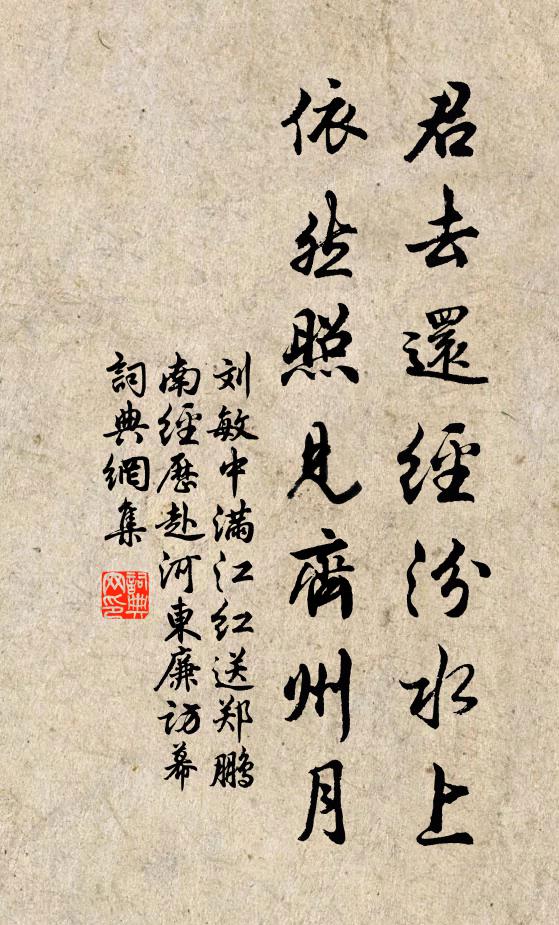 君去還經汾水上
依然照見齊州月
刘敏中满江红送郑鹏
南經歷赴河東廉访幕
詞典網集
詞典網印